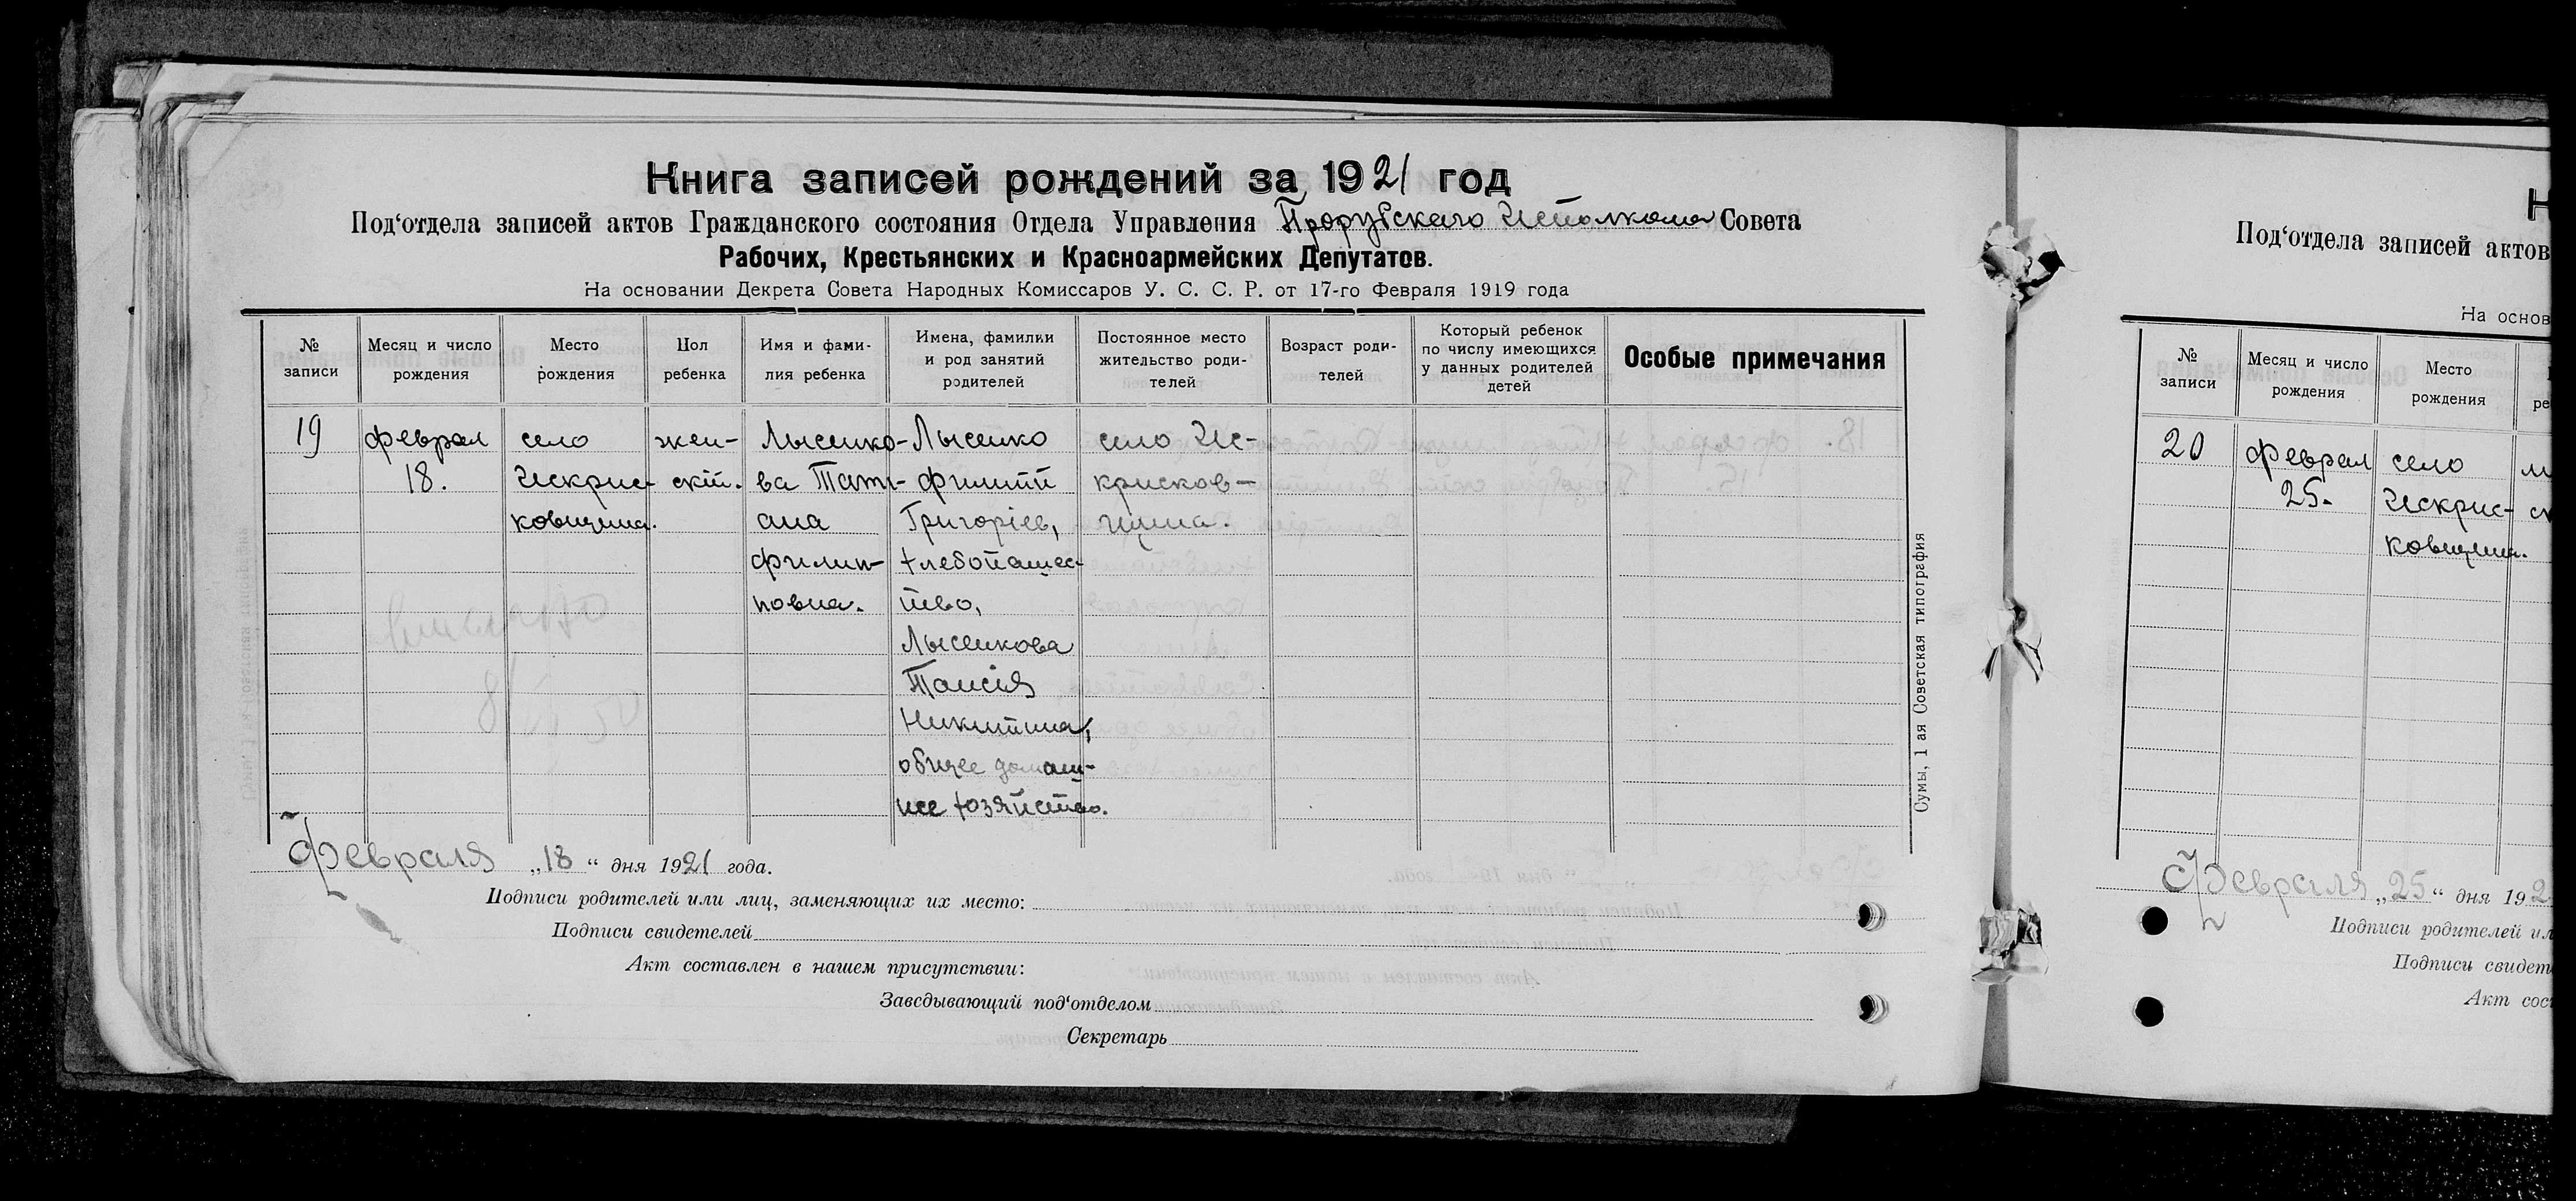 Книга записей рождений за 1921 год
Под'отдела записей актов Гражданского состояния Отдела Управления Прорубскаго Исполкома Совета
Рабочих, Крестьянских и Красноармейских Депутатов.
На основании Декрета Совета Народных Комиссаров У. С. С. Р. от 17-го Февраля 1919 года
№ записи
Месяц и число рождения
Место рождения
Пол ребенка
Имя и фами-
лия ребенка
Имена, фамилии
и род занятий
родителей
Постоянное место
жительство роди-
телей
Возраст роди-
телей
Который ребенок
по числу имеющихся
у данных родителей
детей
Особые примечания
19
феврал
18.
село
Искрис-
ковщина.
жен-
скій.
Лысенко-
ва Тати-
ана
филип-
повна.
Лысенко
филипп
Григоріев,
хлебопашес-
тво,
Лысенкова
Таисія
Никитина,
общее домаш-
нее хозяйство.
село Ис-
крисков-
щина.
8/VI 50
Февраля „18“ дня 1921 года.
Подписи родителей или лиц, заменяющих их место:
Подписи свидетелей
Акт составлен в нашем присутствии:
Заведывающий под'отделом
Секретарь
Сумы, 1 ая Советская типография
Под'отдела записей актов
На основ
№ записи
Месяц и число рождения
Место рождения
20
феврал
25.
село
Искрис-
ковщина.
Февраля „25“ дня 192
Подписи родителей ил
Подписи свидет
Акт сос